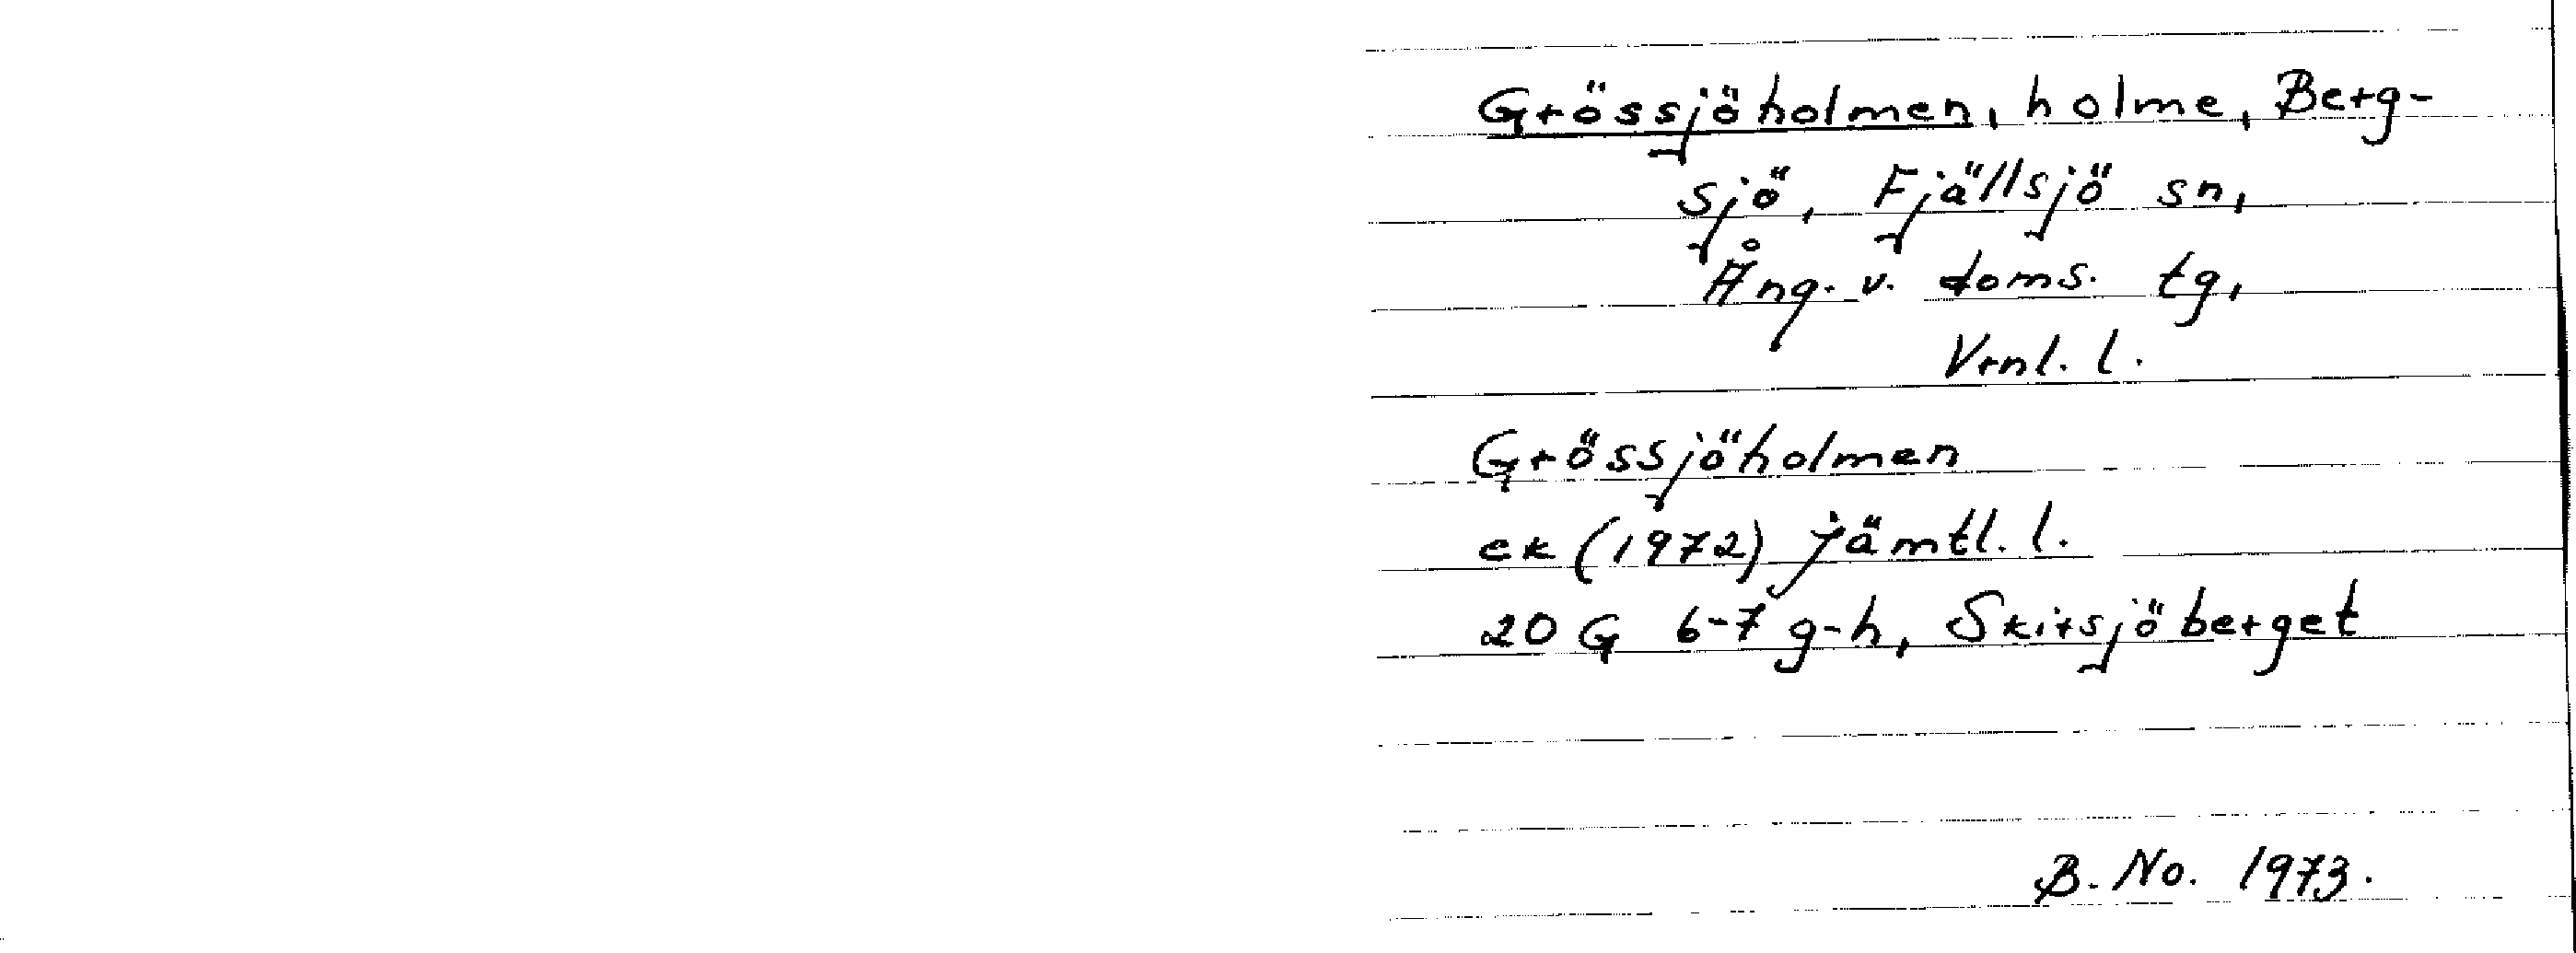 Grössjöholmen, holme, Berg-
sjö, Fjällsjö sn,
Ång. v. doms. tg,
Vrnl. l.
Grössjöholmen
ek (1972) jämtl. l.
20 G 6-7 g-h, Skirsjöberget
B. No. 1973.